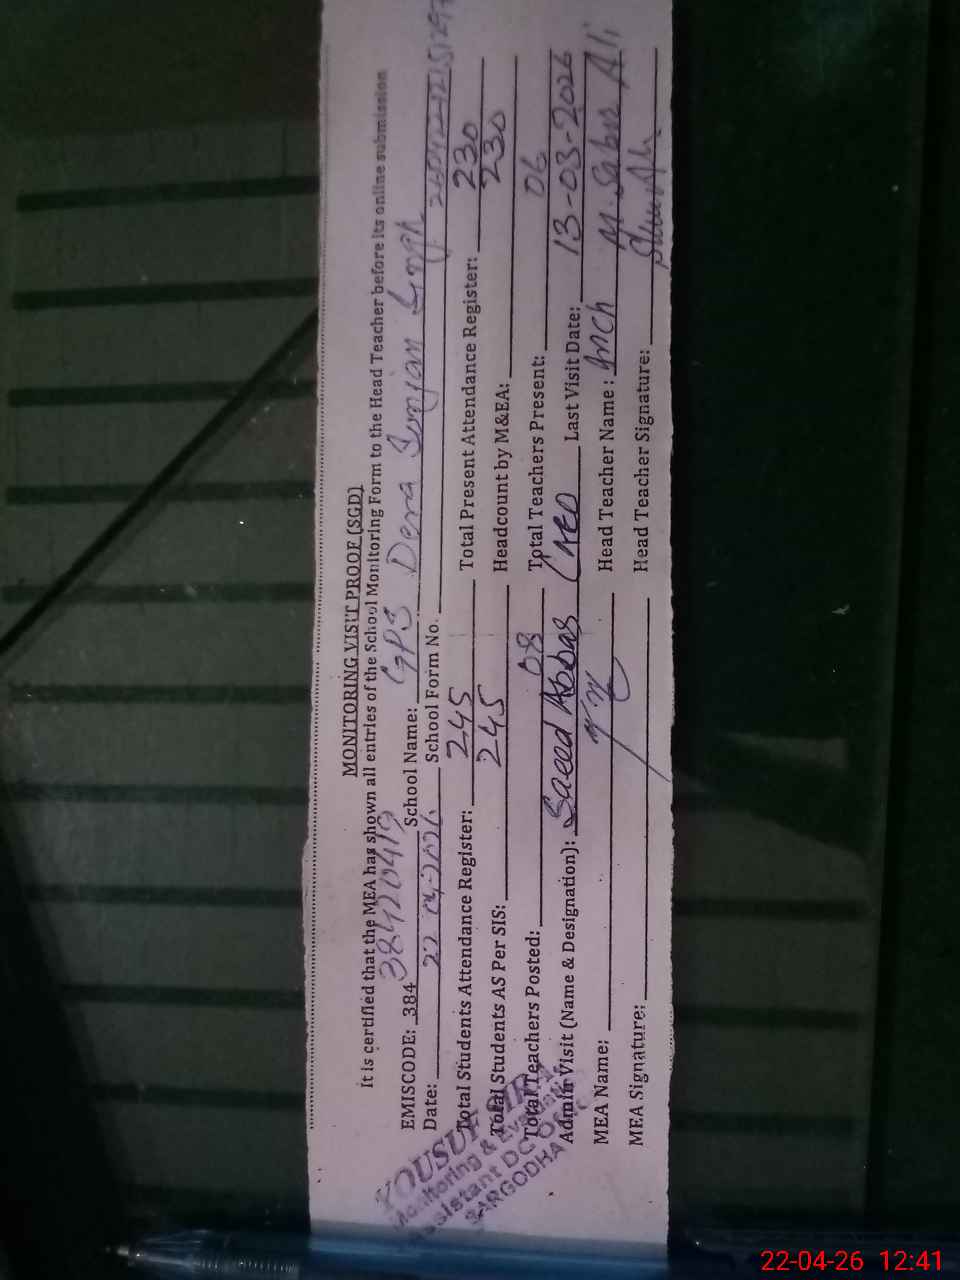 MONITORING VISIT PROOF (SGD)
It is certified that the MEA has shown all entries of the School Monitoring Form to the Head Teacher before its online submission
EMISCODE: 384 38420419 School Name: GPS Dera
Date: 22-04-2026 School Form No.
Total Students Attendance Register: 245 Total Present Attendance Register: 230
Total Students AS Per SIS: 245 Headcount by M&EA: 230
Total Teachers Posted: 08 Total Teachers Present: 06
Admin Visit (Name & Designation): Saeed Abbas Last Visit Date: 13-03-2026
MEA Name: Head Teacher Name: M. Saber Ali
MEA Signature: Head Teacher Signature:
YOUSUF
Monitoring & Evaluation
Assistant DC Office
SARGODHA
22-04-26 12:41